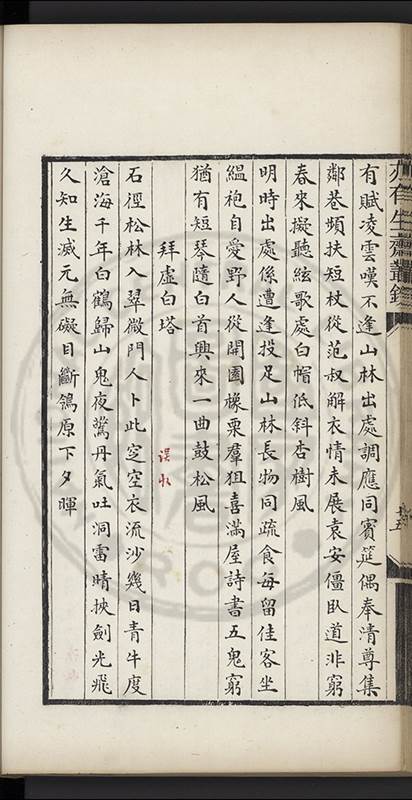 亦有生齋叢錄
有賦凌雲嘆不逢山林出處調應同賓筵偶奉清尊集
鄰巷頻扶短杖從范叔解衣情未展袁安僵臥道非窮
春來擬聽絃歌處白帽低斜杏樹風
明時出處係遭逢投足山林長物同疏食每留佳客坐
縕袍自愛野人從開園橡栗羣狙喜滿屋詩書五鬼窮
猶有短琴隨白首興來一曲鼓松風
拜虛白塔
誤收
石徑松林入翠微門人卜此窆空衣流沙幾日青牛度
滄海千年白鶴歸山鬼夜驚丹氣吐洞雷晴挾劍光飛
久知生滅元無礙目斷鴒原下夕暉